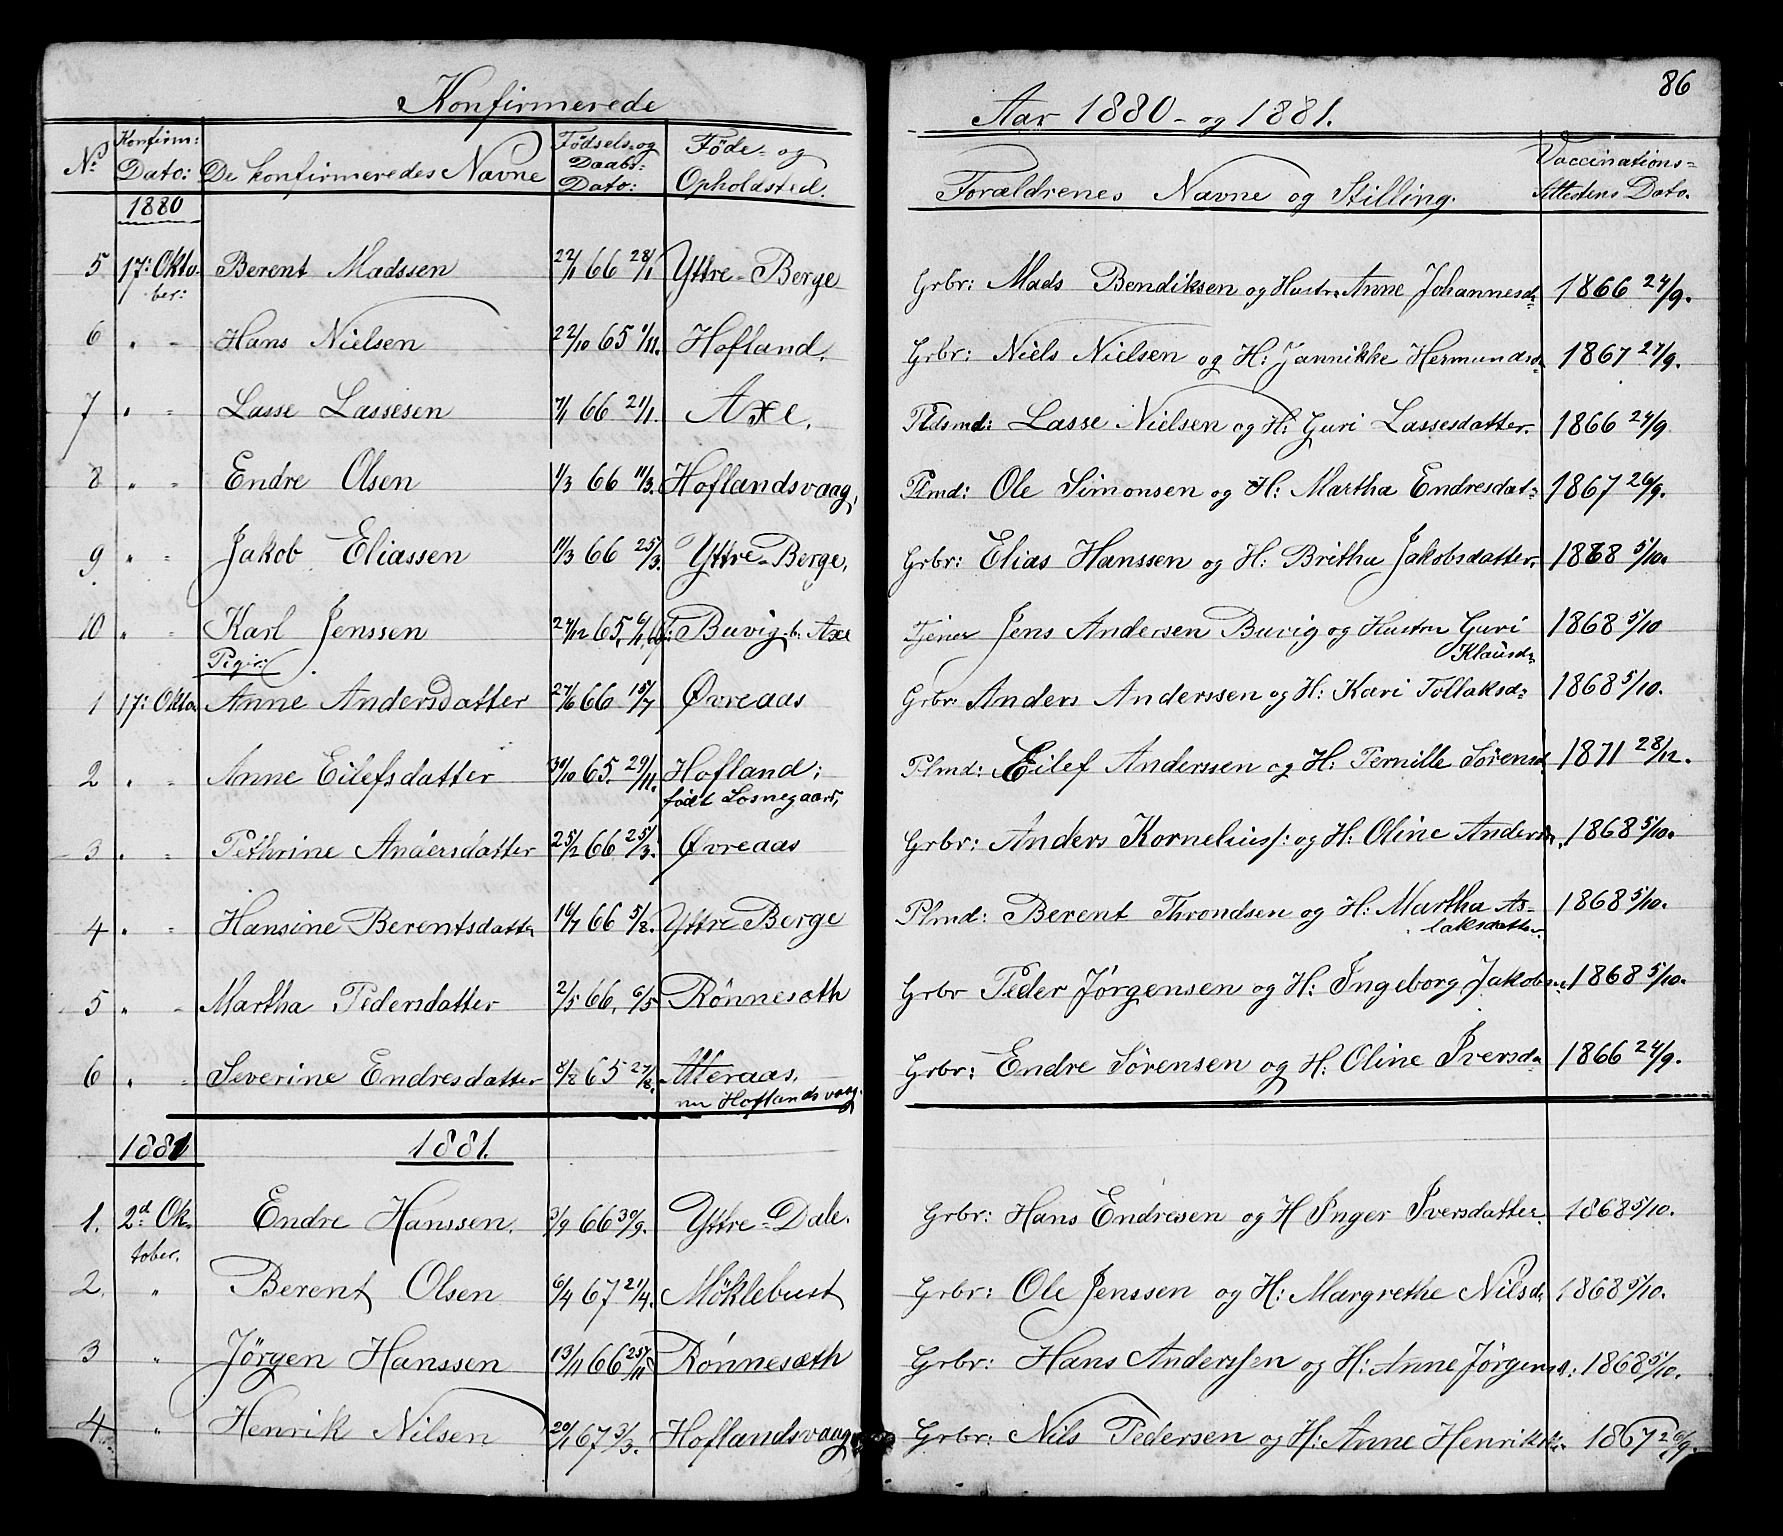 86
Konfirmerede Aar 1880 - og 1881.
No Konfirm: Dato: De konfirmeredes Navne Fødsels- og Daabs- Dato: Føde- og Opholdsted. Forældrenes Navne og Stilling. Vaccinations- Attestens Dato.
1880
5 17: Okto- ber: Berent Madssen 22/1 66 28/1 Yttre-Berge Grbr: Mads Bendiksen og Hustru Anne Johannesd: 1866 24/9.
6 " " Hans Nielsen 22/10 65 1/11. Hofland. Grbr: Niels Nielsen og H: Jannikke Hermundsd: 1867 27/9.
7 " " Lasse Lassesen 7/1 66 21/1. Axe. Pldsmd: Lasse Nielsen og H: Guri Lassesdatter. 1866 24/9
8 " " Endre Olsen 1/3 66 11/3. Hoflandsvaag, Plmd: Ole Simonsen og H: Martha Endresdat: 1867 26/9.
9 " " Jakob Eliassen 11/3 66 25/3. Yttre-Berge. Grbr: Elias Hanssen og H: Britha Jakobsdatter. 1868 5/10.
10 " " Karl Jenssen 27/12 65, 6/1 66. Buvig b. Axe Tjener Jens Andersen Buvig og Hustru Guri Klausd: 1868 5/10
Piger:
1 17: Okto. Anne Andersdatter 27/6 66 15/7 Øvreaas Grbr: Anders Anderssen og H: Kari Tollaksd: 1868 5/10.
2 " " Anne Eilefsdatter 30/10 65. 29/11. Hofland; født Losnegaard, Plmd: Eilef Anderssen og H: Pernille Sørensd. 1871 28/12.
3 " " Pethrine Andersdatter 25/2 66 25/3. Øvreaas Grbr: Anders Korneliusf: og H: Oline Andersd., 1868 5/10.
4 " " Hansine Berentsdatter 16/7 66 5/8. Yttre Berge Plmd: Berent Throndsen og H: Martha As- laksdatter. 1868 5/10.
5 " " Martha Pedersdatter 2/5 66, 6/5 Rønnesæth Grbr Peder Jørgensen og H: Ingeborg Jakobsd: 1868 5/10.
6 " " Severine Endresdatter 8/8 65 27/8. Atteraas. nu Hoflandsvaag. Grbr: Endre Sørensen og H: Oline Iversda 1866 24/9.
1881 1881.
1. 2d Ok- tober. Endre Hanssen. 3/9 66 30/9. Yttre-Dale. Grbr: Hans Endresen og H Inger Iversdatter. 1868 5/10.
2. " Berent Olsen 6/4 67 21/4. Möklebust Grbr: Ole Jenssen og H: Margrethe Nilsd: 1868 5/10.
3 " Jörgen Hanssen 13/11 66 25/11 Rönnesæth Grbr: Hans Anderssen og H: Anne Jørgensd: 1868 5/10.
4 " Henrik Nilsen 20/1 67 3/3. Hoflandsvaag Grbr: Nils Pedersen og H: Anne Henrikk. 1867 26/9.